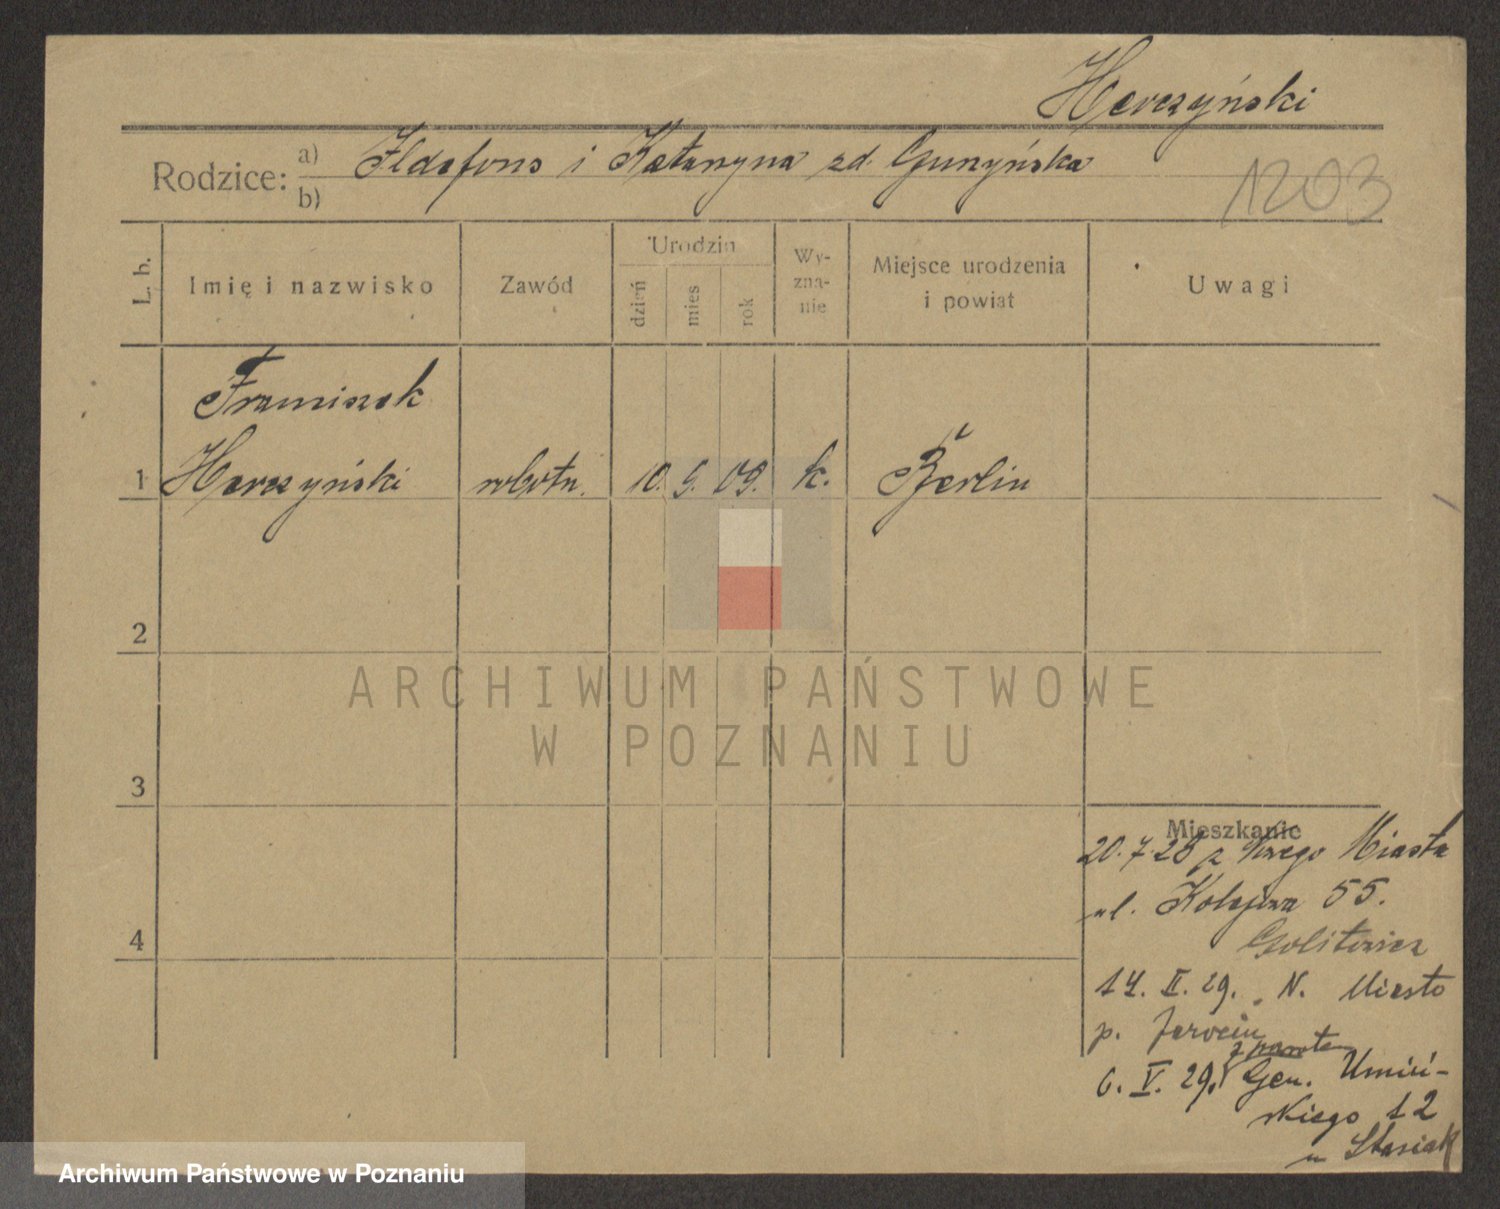 Herczyński
Rodzice: a) Ildefons i Katarzyna zd.
b)
1203
L. b.
Imię i nazwisko
Zawód
Urodzin
dzień
mies
rok
Wy-
zna-
nie
Miejsce urodzenia
i powiat
Uwagi
Franciszek
1 Herczyński robotn. 10. 9. 09. k. Berlin
2
3
4
Mieszkanie
20.7.28 z Nowego Miasta
ul. Kolejowa 55.
14. II. 29. N. Miasto
p. Jarocin
z powrotem
6. V. 29. Gen. Umiń-
skiego 12
u Stasiak
ARCHIWUM PAŃSTWOWE
W POZNANIU
Archiwum Państwowe w Poznaniu